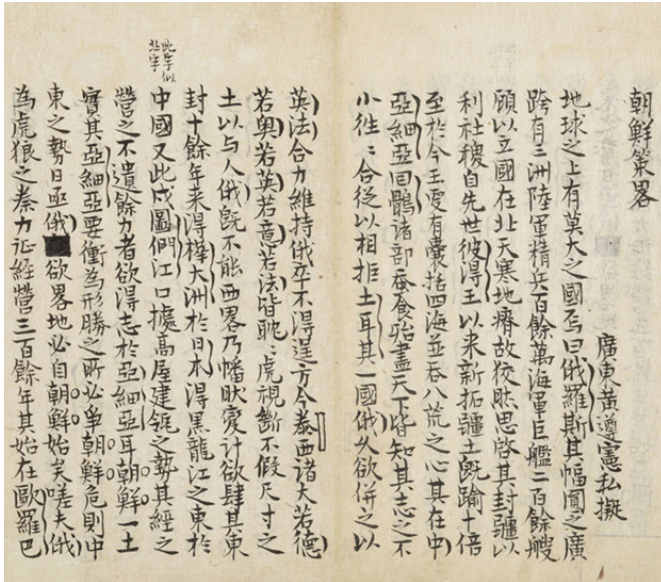 朝鮮策畧
廣東黃遵憲私擬
地球之上有莫大之國焉曰俄羅斯其幅圓之廣
跨有三洲陸軍精兵百餘萬海軍巨艦二百餘艘
顧以立國在北天寒地瘠故狡然思啓其封疆以
利社稷自先世彼得王以来新拓疆土旣踰十倍
至於今王更有囊括四海並吞八荒之心其在中
亞細亞回鶻諸部蚕食殆盡天下皆知其志之不
小徃〻合從以相拒土耳其一國俄久欲併之以
英法合力維持俄卒不得逞方今泰西諸大若德
若奥若英若意若法皆眈〻虎視斷不假尺寸之
土以与人俄旣不能西畧乃幡然變計欲肆其東
封十餘年来得樺大洲於日本得黑龍江之東於
此字似
字
中國又此戍圖們江口據高屋建瓴之勢其經之
營之不遺餘力者欲得志於亞細亞耳朝鮮一土
實其亞細亞要衝為形勝之所必争朝鮮危則中
東之勢日亟俄欲畧地必自朝鮮始矣嗟夫俄
為虎狼之秦力征經營三百餘年其始在歐羅巴